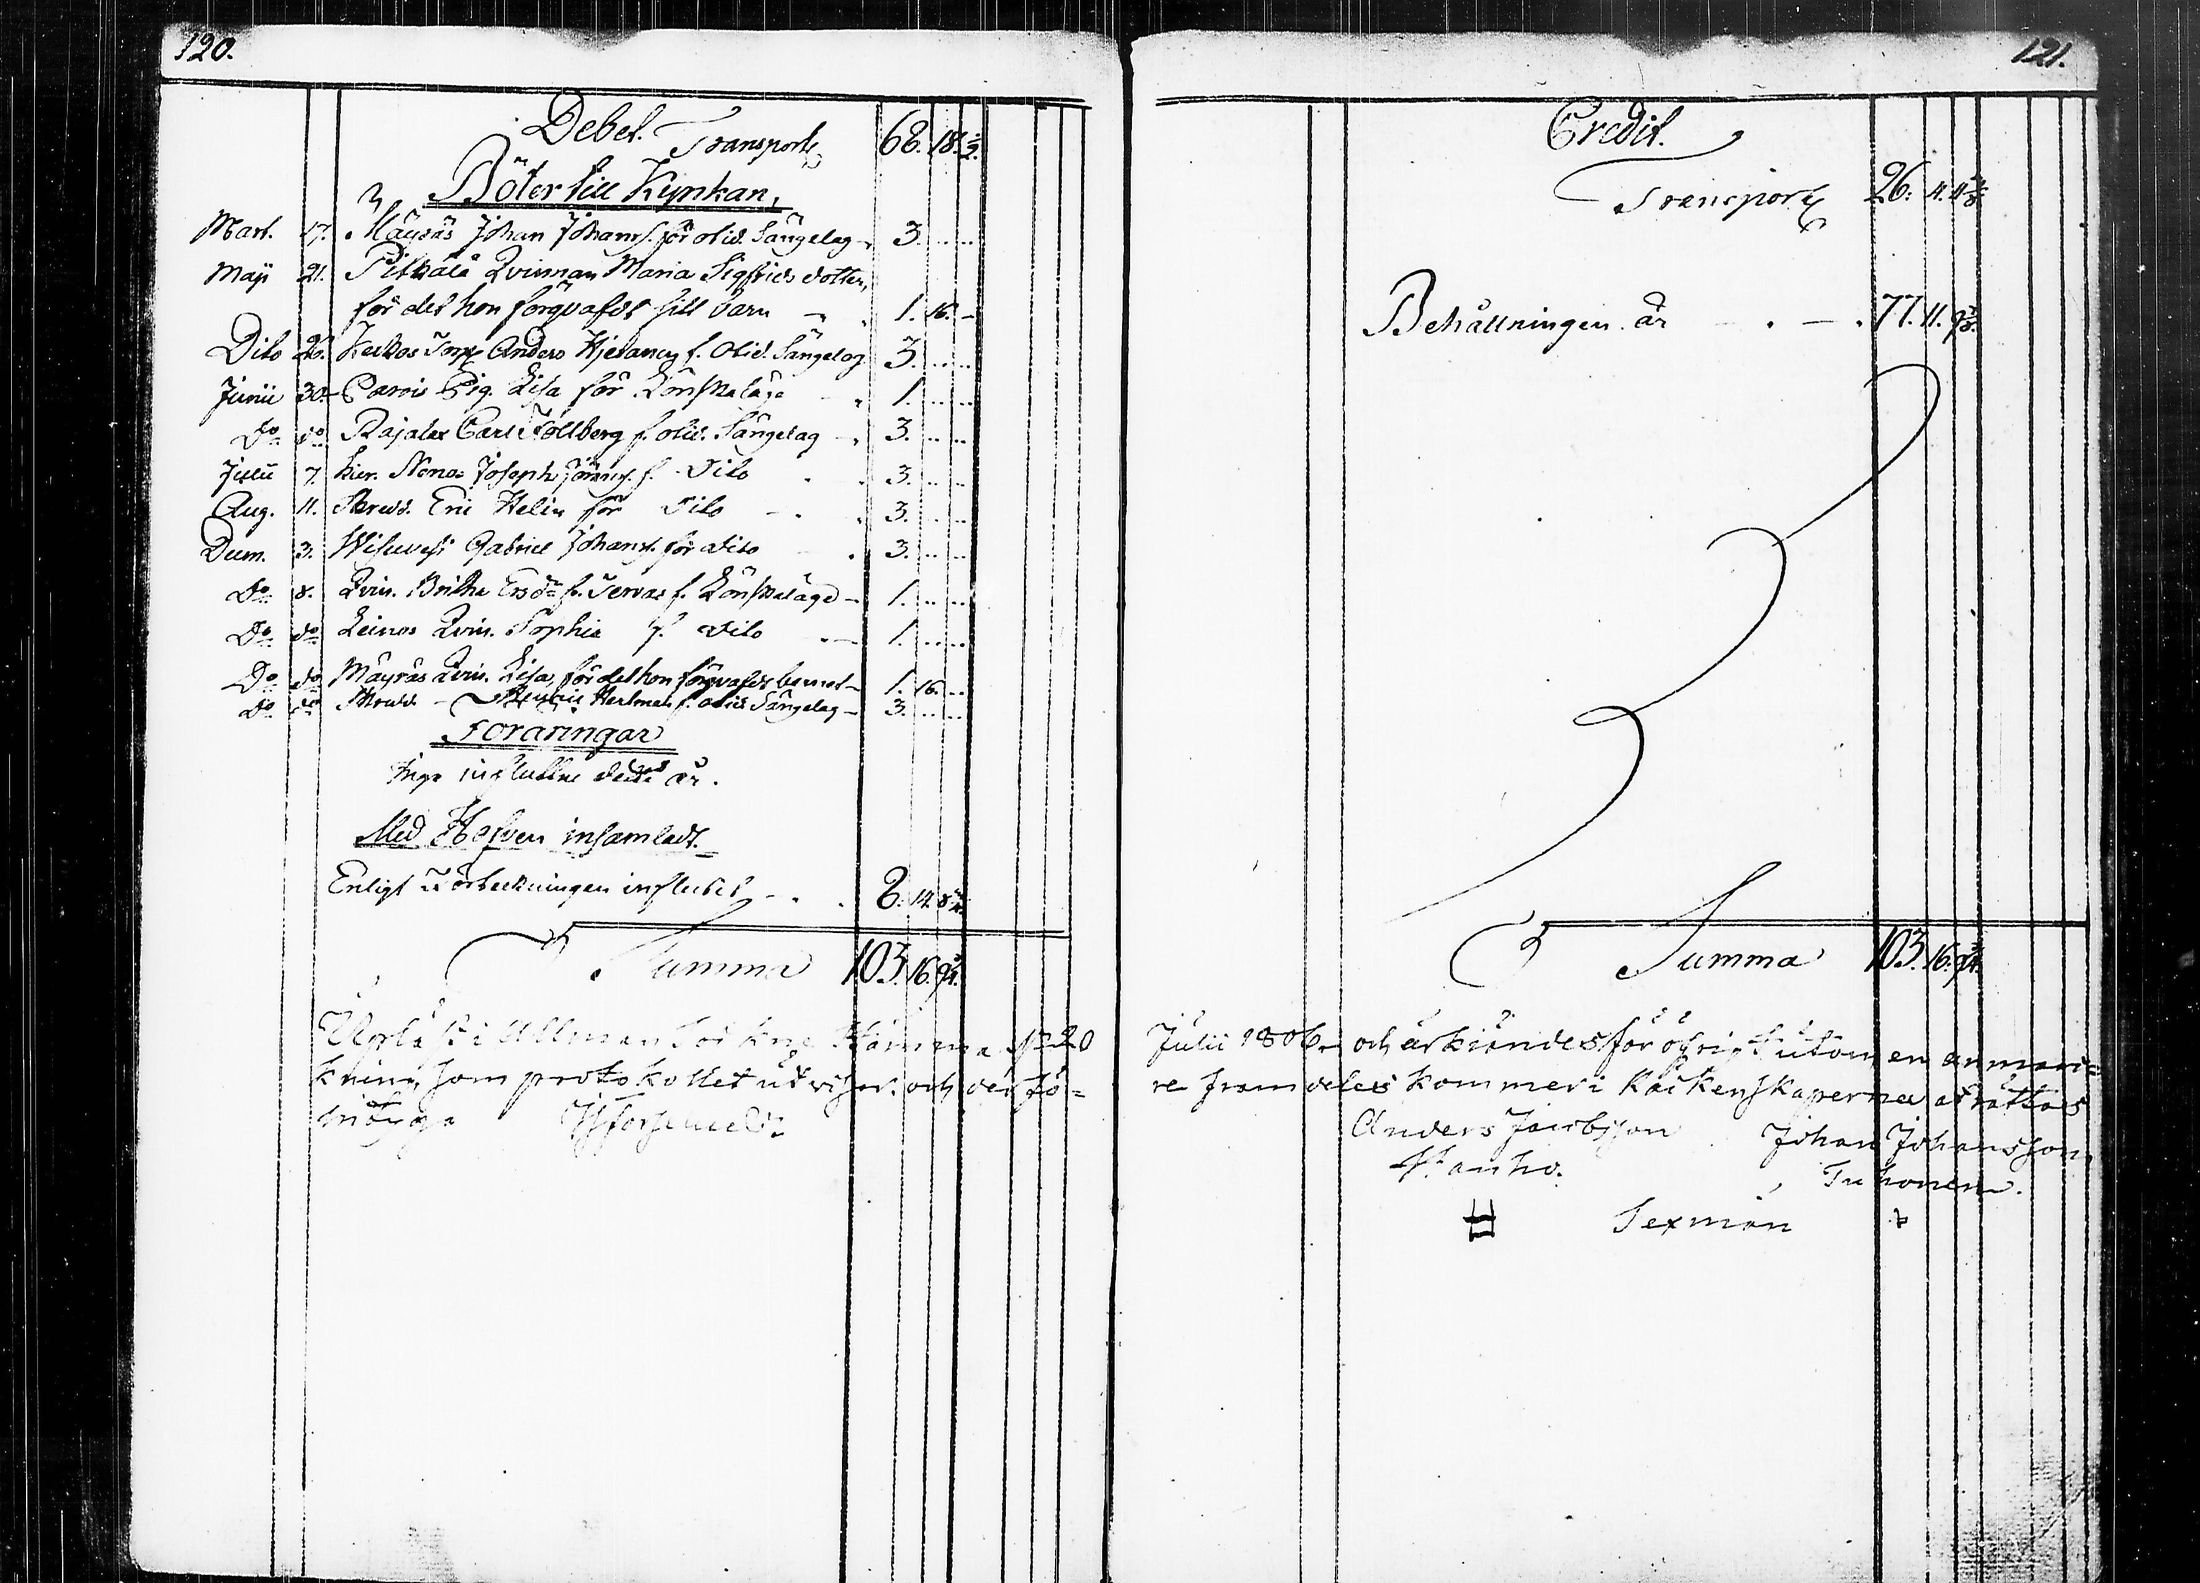 120.
Debet. Transport 68. 18. 1/2.
Böter till Kyrkan,
Mart. 17. Mäyräs Johan Johans. för olid. Sängelag 3. .. ..
Maji 21. Pitkälä Qvinnan Maria Sigfrids dotter,
för det hon förqvafdt sitt barn 1. 16. -
Dito 26. Anders f. Olid. Sängelag 3. .. ..
Junii 30. Parvis Pig. Lisa för Lönskaläge 1. .. ..
Do do Rajalax Carl f. olid. Sängelag 3. .. ..
Julii 7. Joseph f. Dito 3. .. ..
Aug. 11. Eric Helin för Dito 3. .. ..
Decem. 3. Gabriel Johans. för dito 3. .. ..
Do 8. Qvin. Britha Ersdr fr. Jervas f. Lönskaläge 1. .. ..
Do do Leinos Qvin. Sophia f. dito 1. .. ..
Do do Mäyräs Qvin. Lisa, för det hon förqvafdt barnet 1. 16. ..
Do do f. olid Sängelag 3. .. ..
Föräringar
Inga influtne detta år.
Med Håfven insamladt.
Enligt Förteckningen influtit 8. 14. 8 1/4.
Summa 103. 16. 9 3/4.
Upläst i Allmän Sockne Stämma d. 20
kning, som protokollet utvisar. och der fö=
121.
Credit.
Transport 26. 4. 11
Behållningen är 77. 11. 9
Summa 103. 16. 9 3/4.
Julii 1806. och ärkiändes för öfrigt utom en anmärc=
re framdeles kommer i Räkenskaperna at rättas
Anders Jacobsson Johan Johansson
Tuhonen.
Sexmän